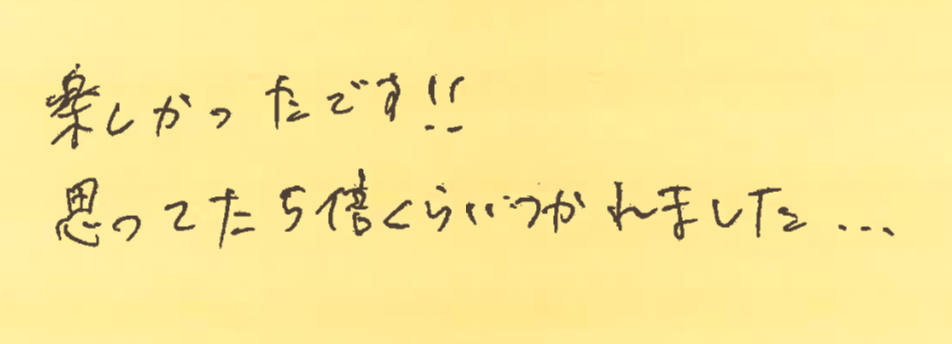 楽しかったです!!
思ってた5倍くらいつかれました...